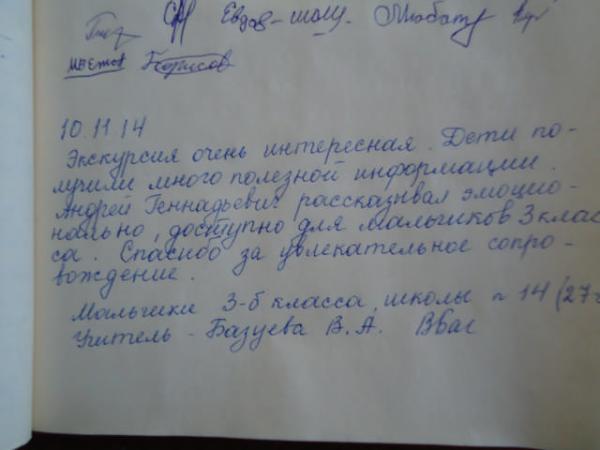 Борисов
10.11.14
Экскурсия очень интересная. Дети по-
лучили много полезной информации.
Андрей Геннадьевич рассказывал эмоцио-
нально, доступно для мальчиков 3 клас
са. Спасибо за увлекательное сопро-
вождение.
Мальчики 3-б класса, школы № 14 (27ч
Учитель - Базуева В.А.